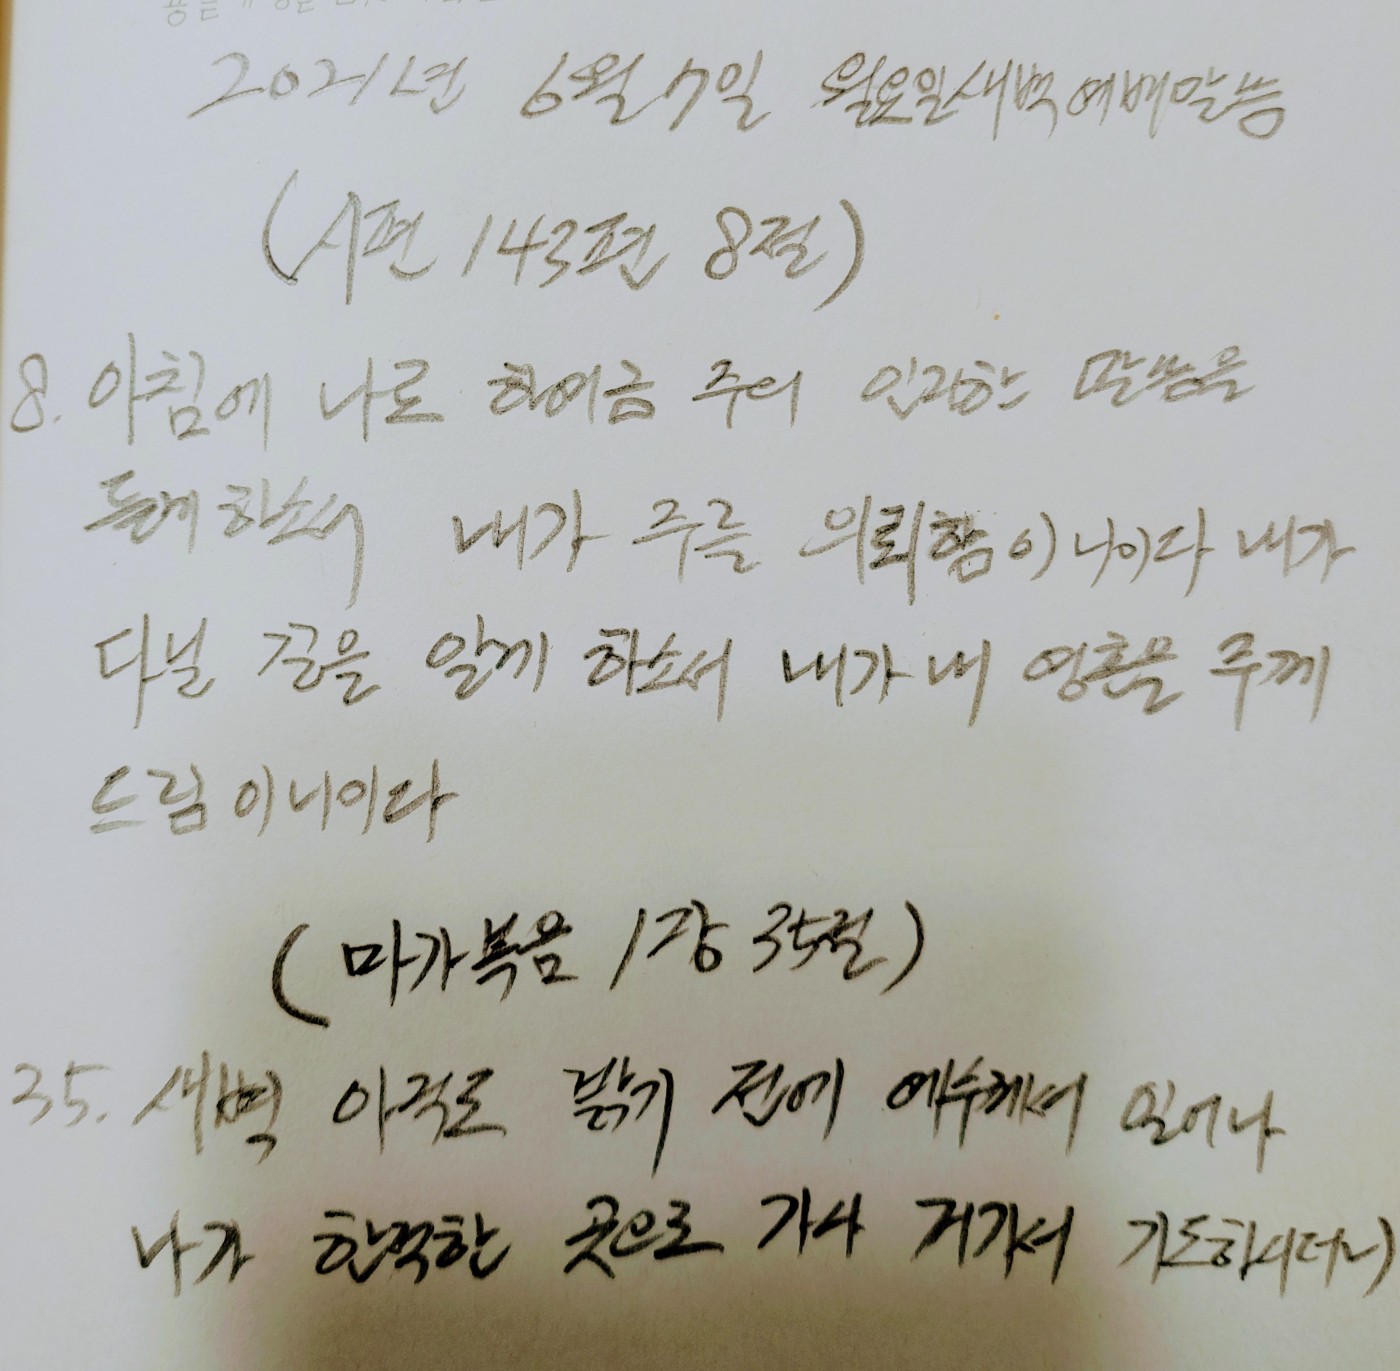 2021년 6월 7일 월요일새벽예배말씀
(시편 143편 8절)
8. 아침에 나로 하여금 주의 인자한 말씀을
듣게 하소서 내가 주를 의뢰함이니이다 내가
다닐 길을 알게 하소서 내가 내 영혼을 주께
드림이니이다
(마가복음 1장 35절)
35. 새벽 아직도 밝기 전에 예수께서 일어나
나가 한적한 곳으로 가사 거기서 기도하시더니